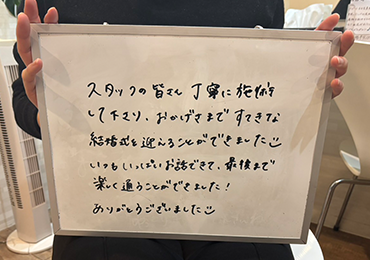 スタッフの皆さん 丁寧に施術を
して下さり、おかげさまで すてきな
結婚式を迎えることができました☺
いつもいっぱいお話できて、最後まで
楽しく通うことができました！
ありがとうございました☺